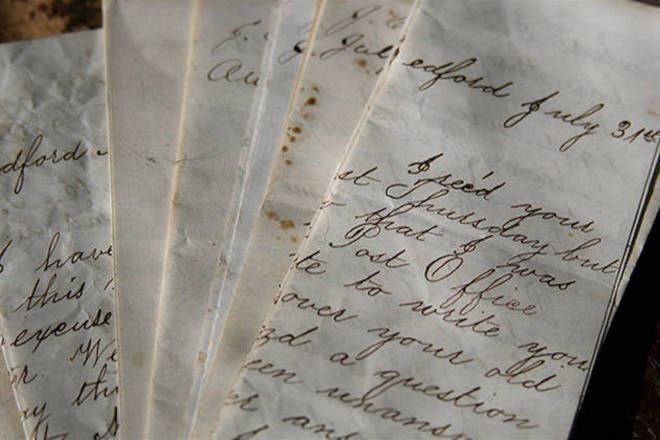 dford
I have
this
excuse
We
J.
Au
J. Jul
edford July 31st
I rec'd your
st Thursday but
that I was
Post Office
te to write you
over your old
d a question
een unans
and